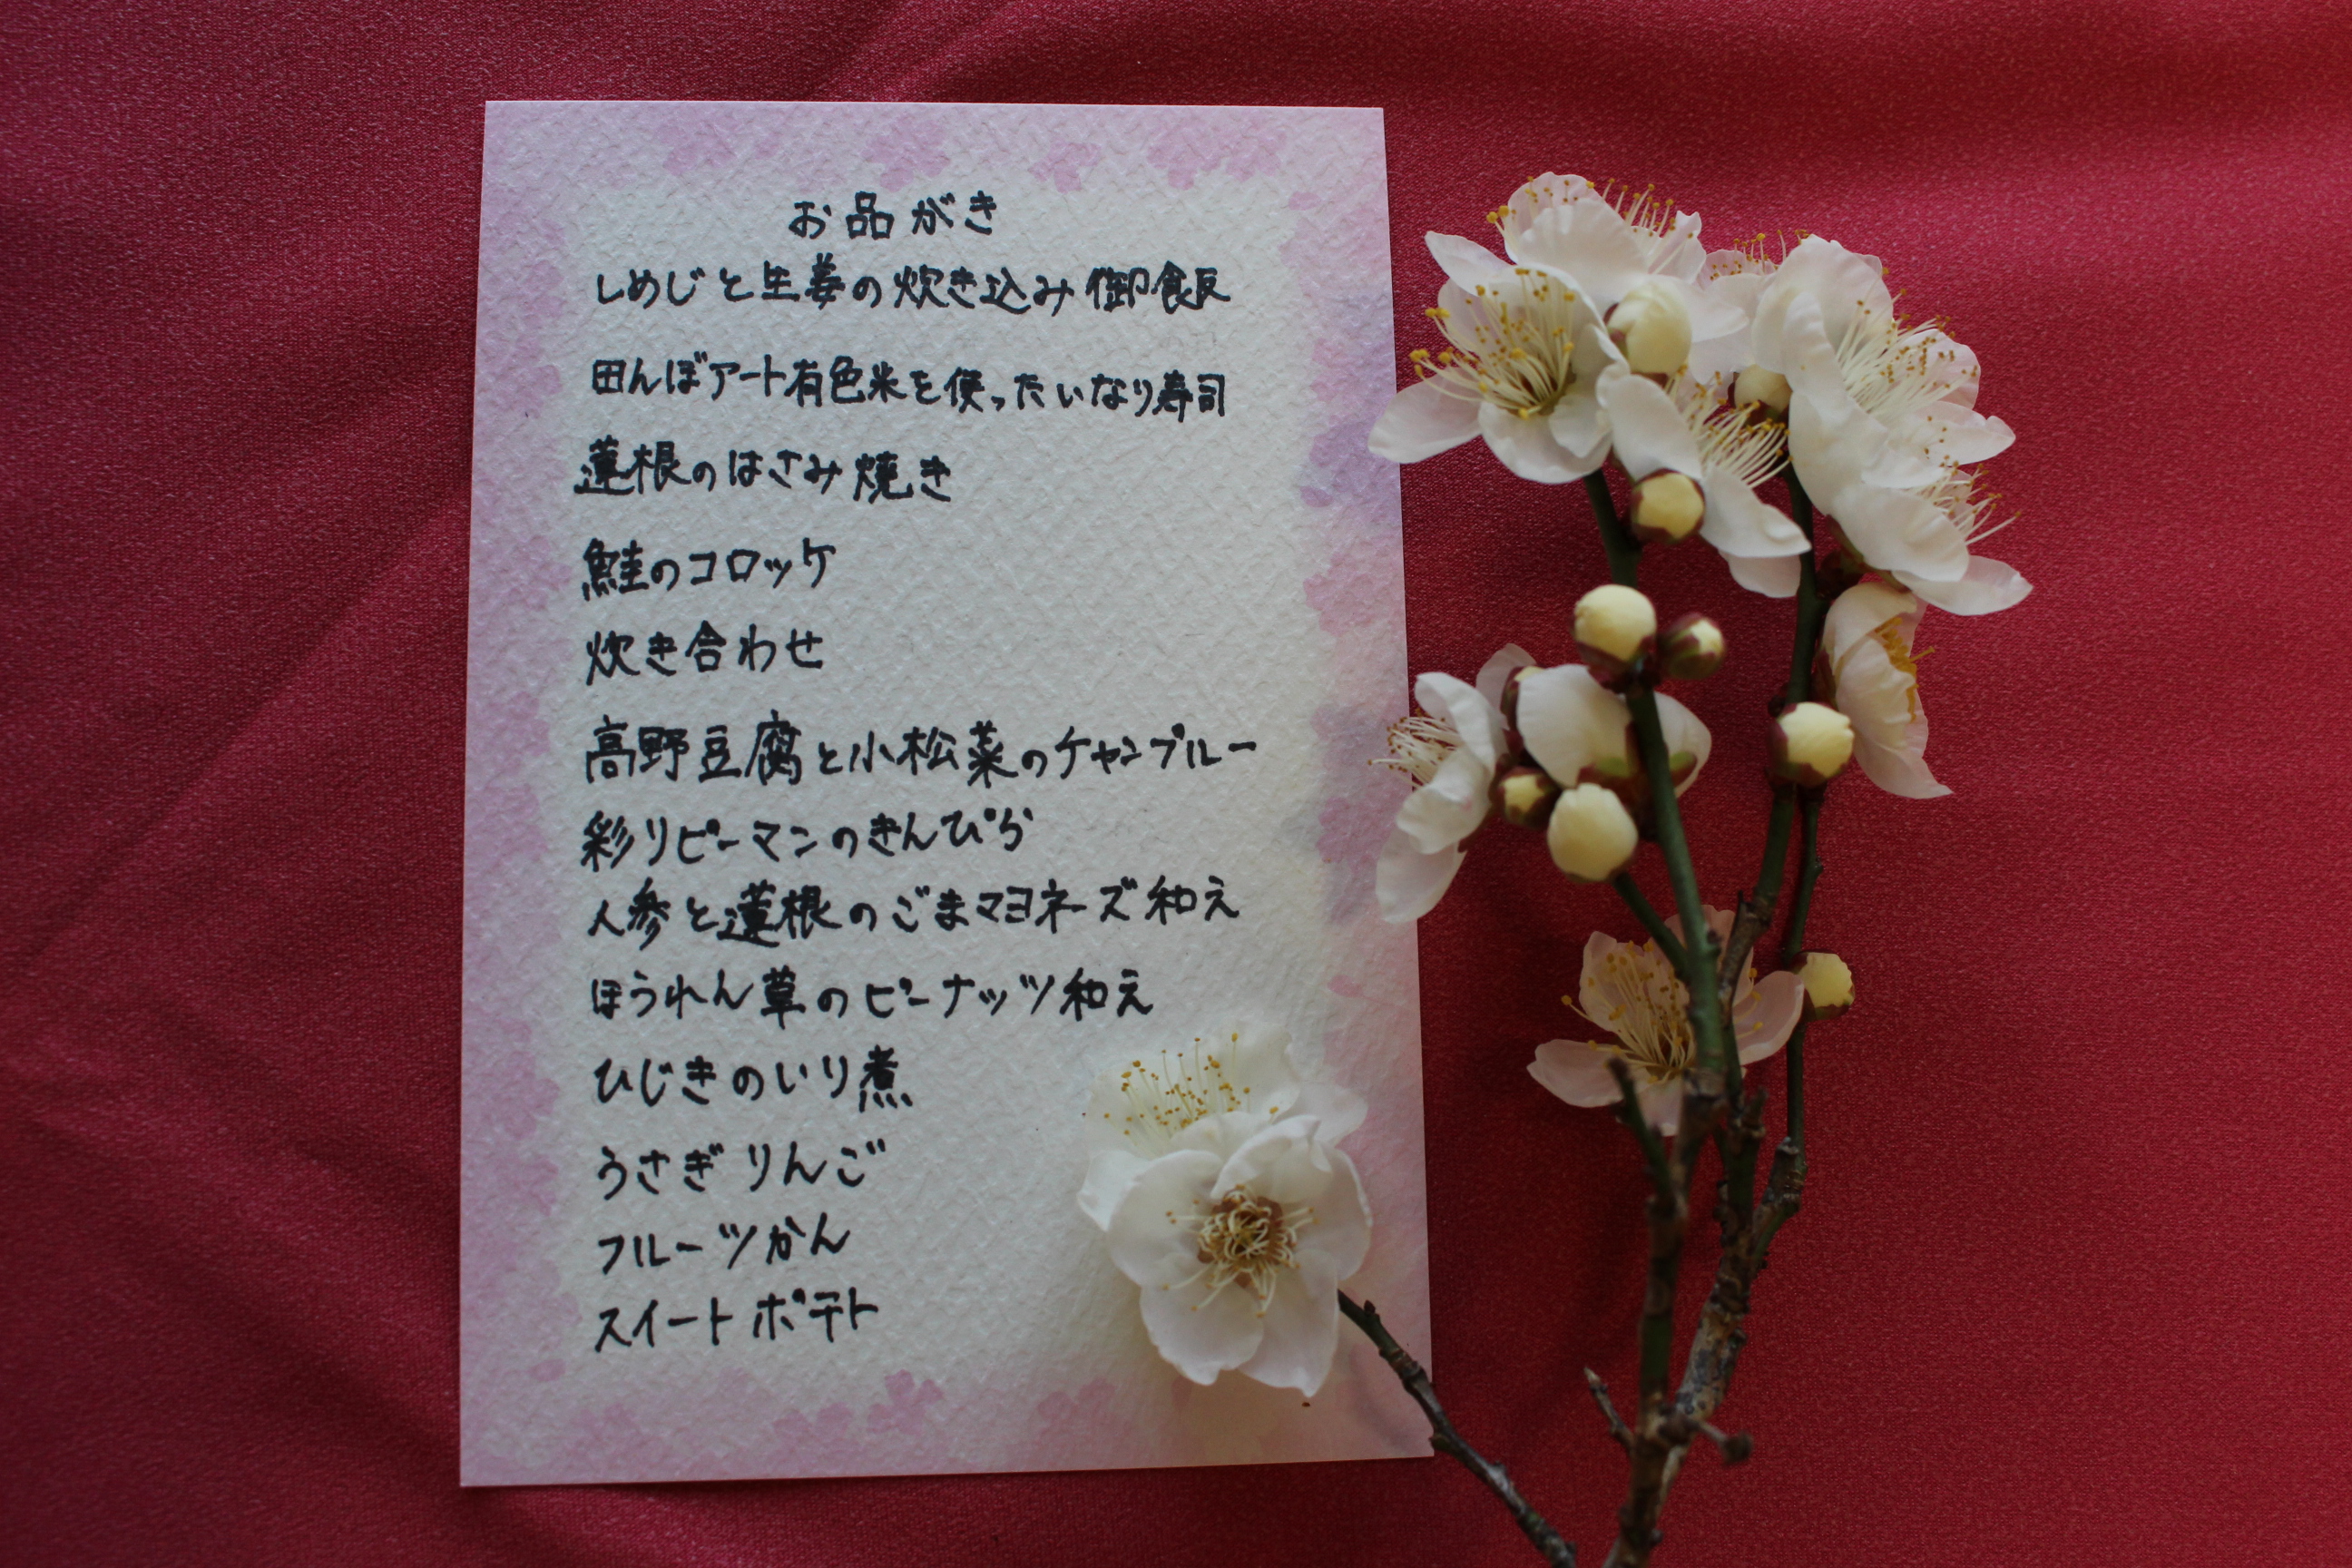 お品がき
しめじと生姜の炊き込み御飯
田んぼアート有色米を使ったいなり寿司
蓮根のはさみ焼き
鮭のコロッケ
炊き合わせ
高野豆腐と小松菜のチャンプルー
彩りピーマンのきんぴら
人参と蓮根のごまマヨネーズ和え
ほうれん草のピーナッツ和え
ひじきのいり煮
うさぎりんご
フルーツかん
スイートポテト